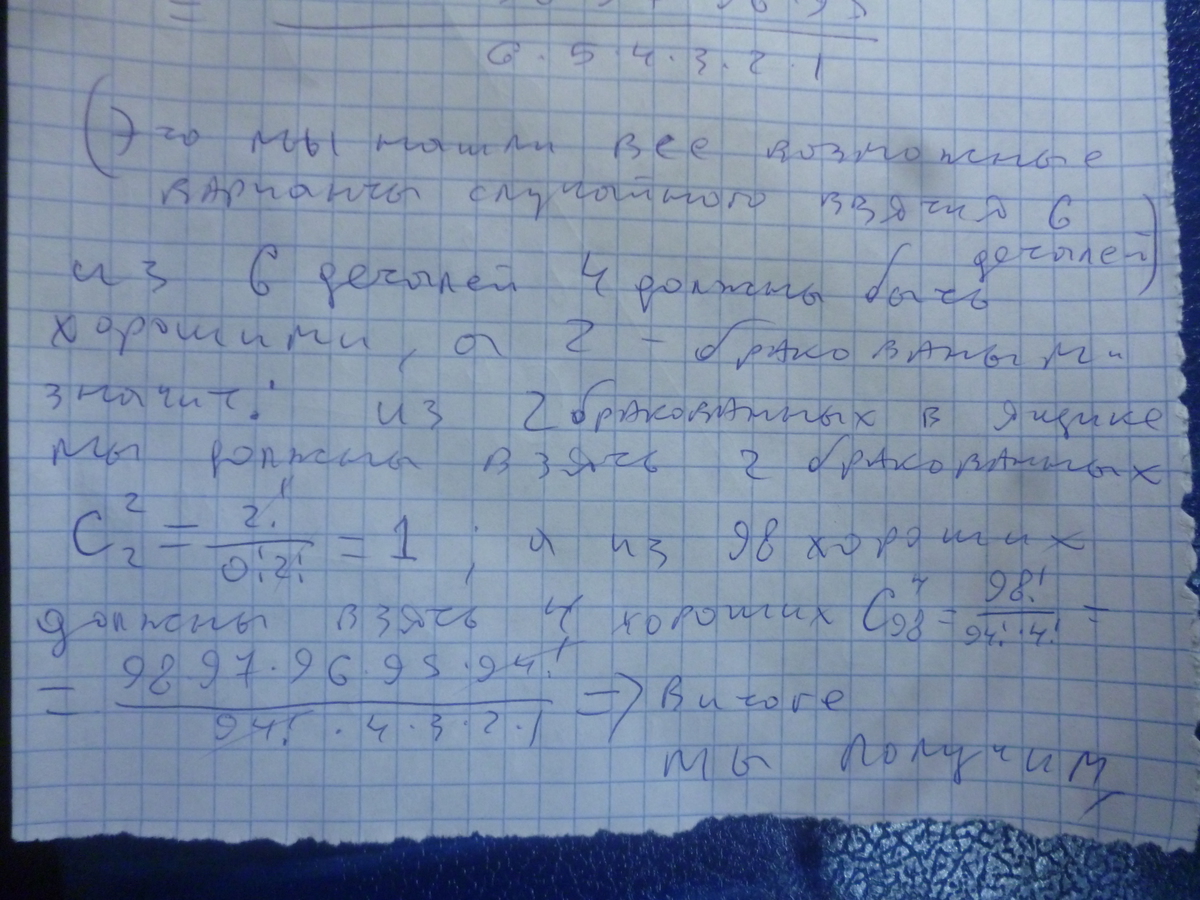 =
6 · 5 · 4 · 3 · 2 · 1
(Это мы нашли все возможные
варианты случайного взятия 6
деталей)
из 6 деталей 4 должны быть
хорошими, а 2 - браковаными
значит: из 2 бракованных в ящике
мы должны взять 2 бракованных
C₂² = 2!/0!2! = 1 ; а из 98 хороших
должны взять 4 хороших C₉₈⁴ = 98!/94!·4! =
= 98·97·96·95·94!/94!·4·3·2·1 => В итоге
мы получим,